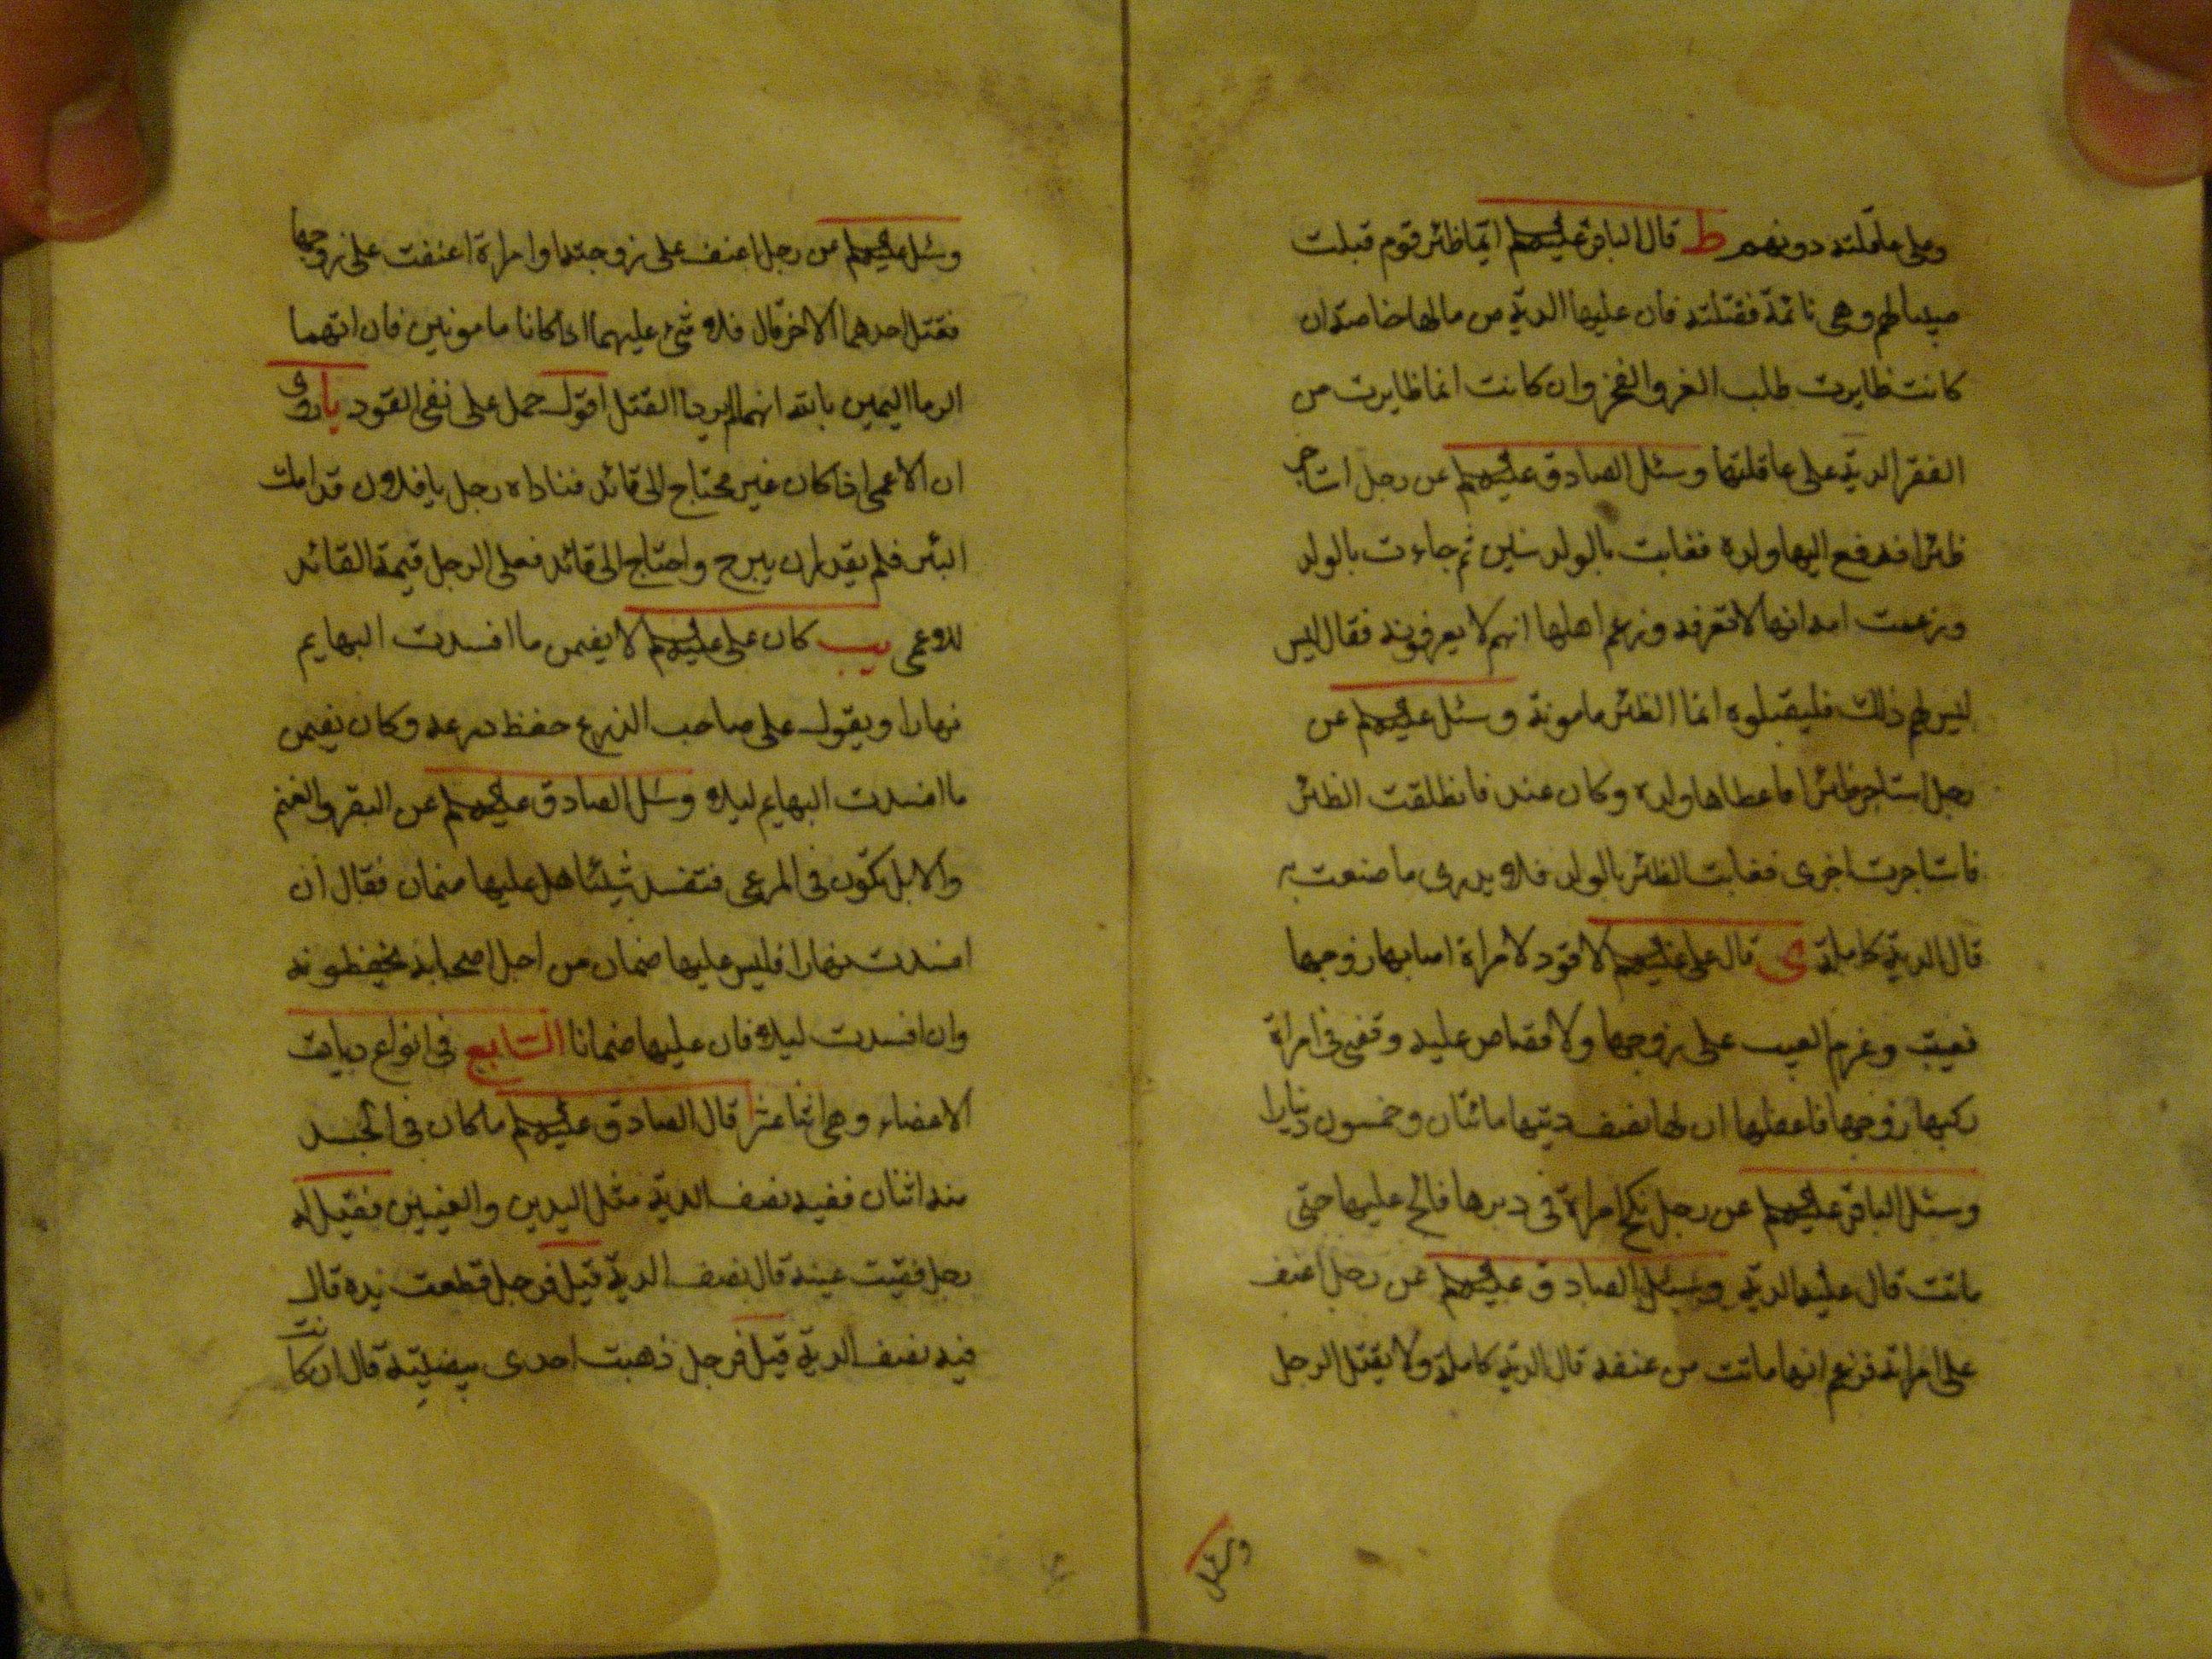 وعلى عاقلته دونهم ط قال الباقر عليه السلم ايما ظئر قوم قبلت
صبيا لهم وهي نائمة فقتلته فان عليها الدية من مالها خاصة ان
كانت ظايرت طلب العز والفخر وان كانت انما ظايرت من
الفقر الدية على عاقلتها وسئل الصادق عليه السلم عن رجل استاجر
ظئرا فدفع اليها ولده فغابت بالولد سنين ثم جاءت بالولد
وزعمت امه انها لا تعرفه وزعم اهلها انهم لا يعرفونه فقال ليس
ليس لهم ذلك فليقبلوه انما الظئر مامونة وسئل عليه السلم عن
رجل استاجر ظئرا فاعطاها ولده وكان عنده فانطلقت الظئر
فاستاجرت اخرى فغابت الظئر بالولد فلا يدرى ما صنعت به
قال الدية كاملة ى قال على عليه السلم لا قود لامراة اصابها زوجها
فعيبت وغرم العيب على زوجها ولا قصاص عليه وقضى في امراة
ركبها زوجها فاعفلها ان لها نصف ديتها مائتان وخمسون دينارا
وسئل الباقر عليه السلم عن رجل نكح امراة في دبرها فالح عليها حتى
ماتت قال عليه الدية وسئل الصادق عليه السلم عن رجل اعنف
على امراته فزعم انها ماتت من عنفه قال الدية كاملة ولا يقتل الرجل
وسئل
وسئل عليه السلم عن رجل اعنف على زوجته او امراة اعنفت على زوجها
فقتل احدهما الاخر قال فلا شئ عليهما اذا كانا مامونين فان اتهما
الزما اليمين بالله انهما لم يريدا القتل اقول حمل على نفى القود يا روى
ان الاعمى اذا كان غير محتاج الى قائد فناداه رجل يا فلان قدامك
البئر فلم يقدر ان يبرح واحتاج الى قائد فعلى الرجل قيمة القائد
للاعمى يب كان على عليه السلم لا يضمن ما افسدت البهايم
نهارا ويقول على صاحب الزرع حفظ زرعه وكان يضمن
ما افسدت البهايم ليلا وسئل الصادق عليه السلم عن البقر والغنم
والابل تكون في المرعى فتفسد شيئا هل عليها ضمان فقال ان
افسدت نهارا فليس عليها ضمان من اجل اصحابه يحفظونه
وان افسدت ليلا فان عليها ضمانا السّابع في انواع ديات
الاعضاء وهي اثنا عشر ا قال الصادق عليه السلم ما كان في الجسد
منه اثنان ففيه نصف الدية مثل اليدين والعينين فقيل له
رجل فقيت عينه قال نصف الدية قيل فرجل قطعت يده قال
فيه نصف الدية قيل فرجل ذهبت احدى بيضيته قال ان كانت